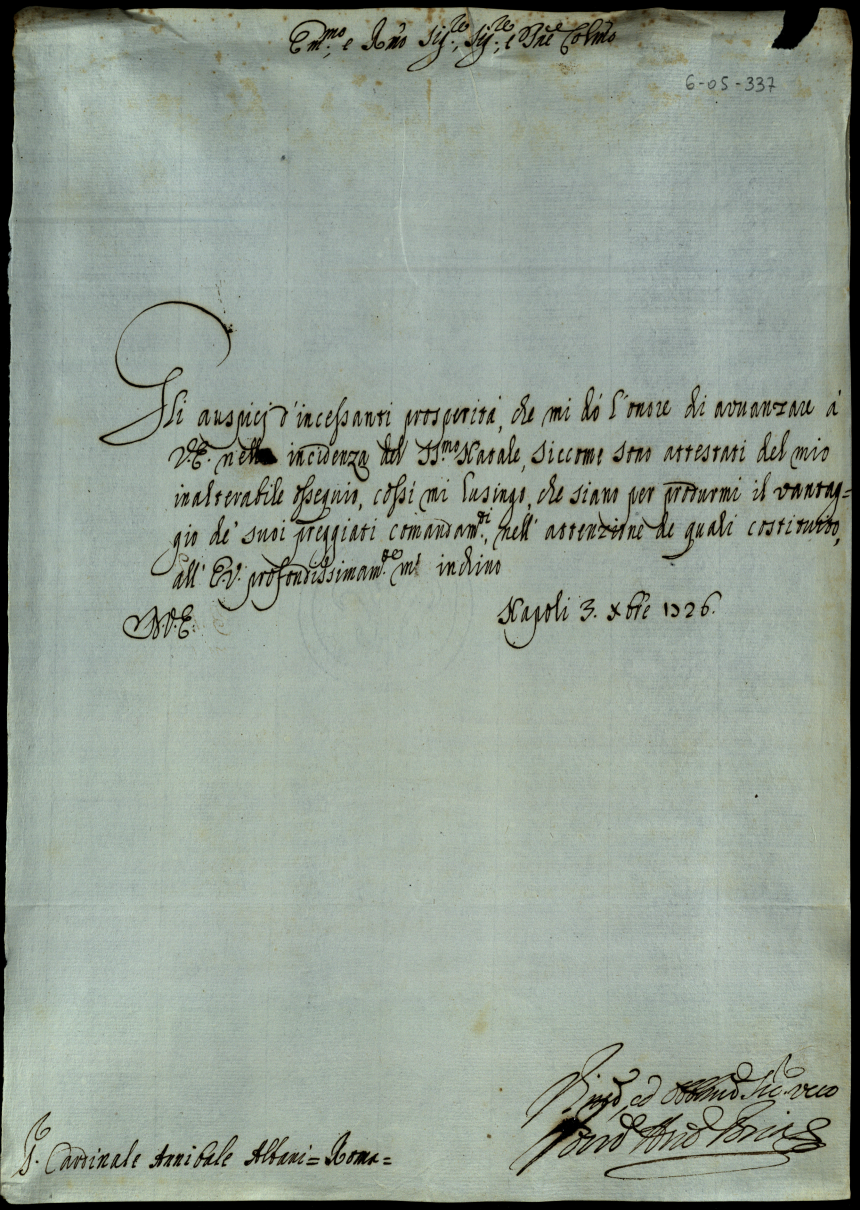 Em.mo, e Rmo Sig.re, Sig.re, e Pne Colmo
6-05-337
Gli auspicj d'incessanti prosperità, che mi dò l'onore di avvanzare à
V.E. nella incidenza del SS.mo Natale, siccome sono attestati del mio
inalterabile ossequio, cossì mi lusingo, che siano per produrmi il vantag=
gio de' suoi preggiati comandam.ti, nell' attenzione de quali costituito,
all' E.V. profondissimam.te m' inchino
D.V.E. Napoli 3. Xbre 1726.
ed
S.r Cardinale Annibale Albani = Roma =